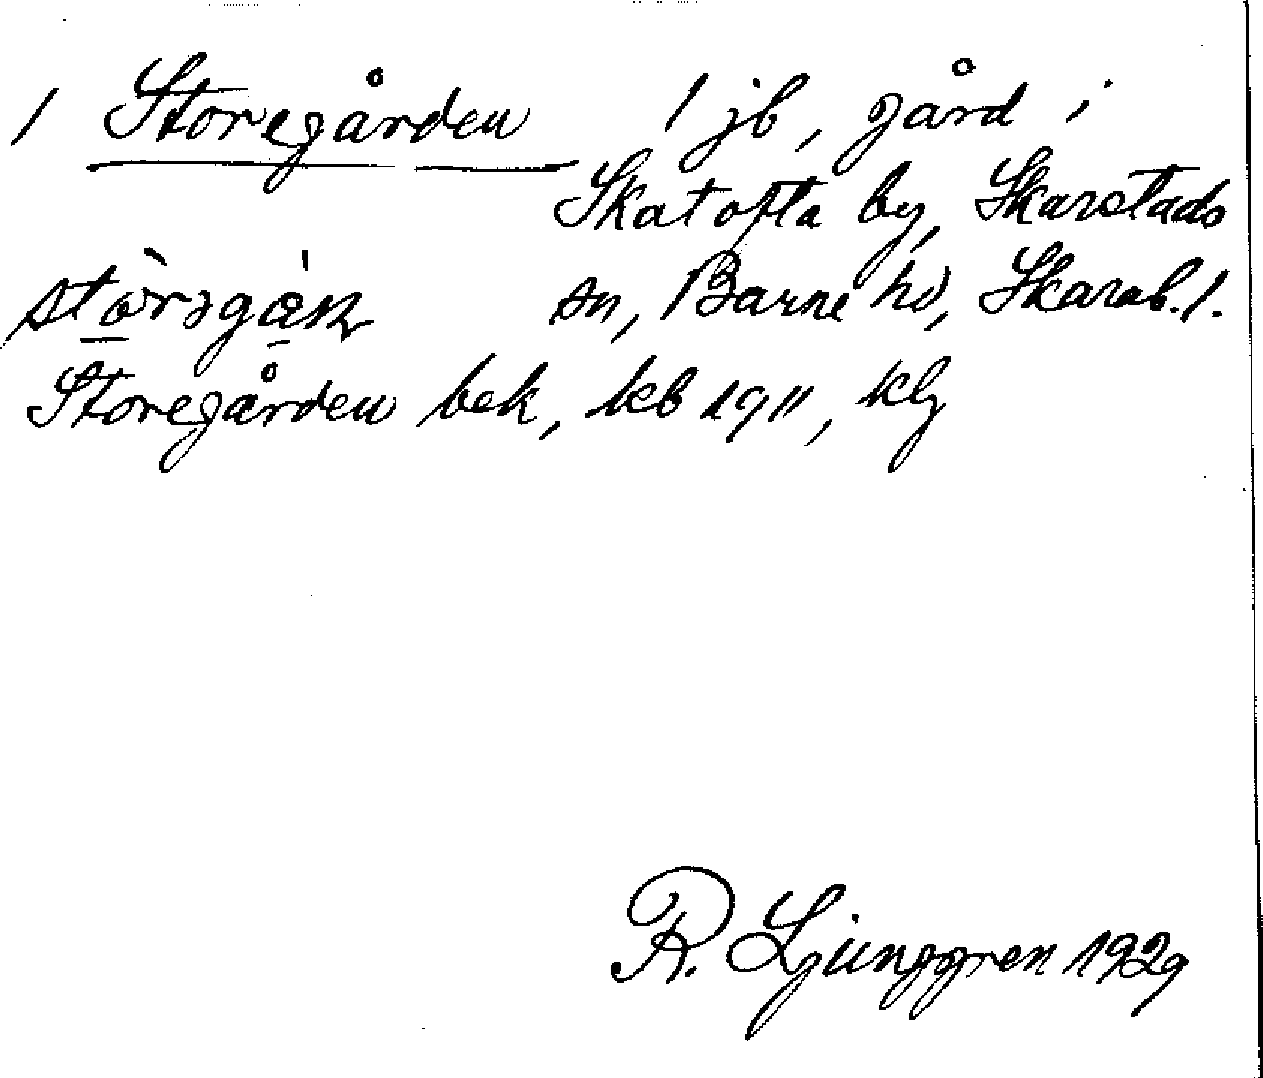 1 Storegården 1 jb, gård i
Skatofta by, Skarstads
sn, Barne hd, Skarab. l.
Storegården bek, kb 1911, klj
R. Ljunggren 1929